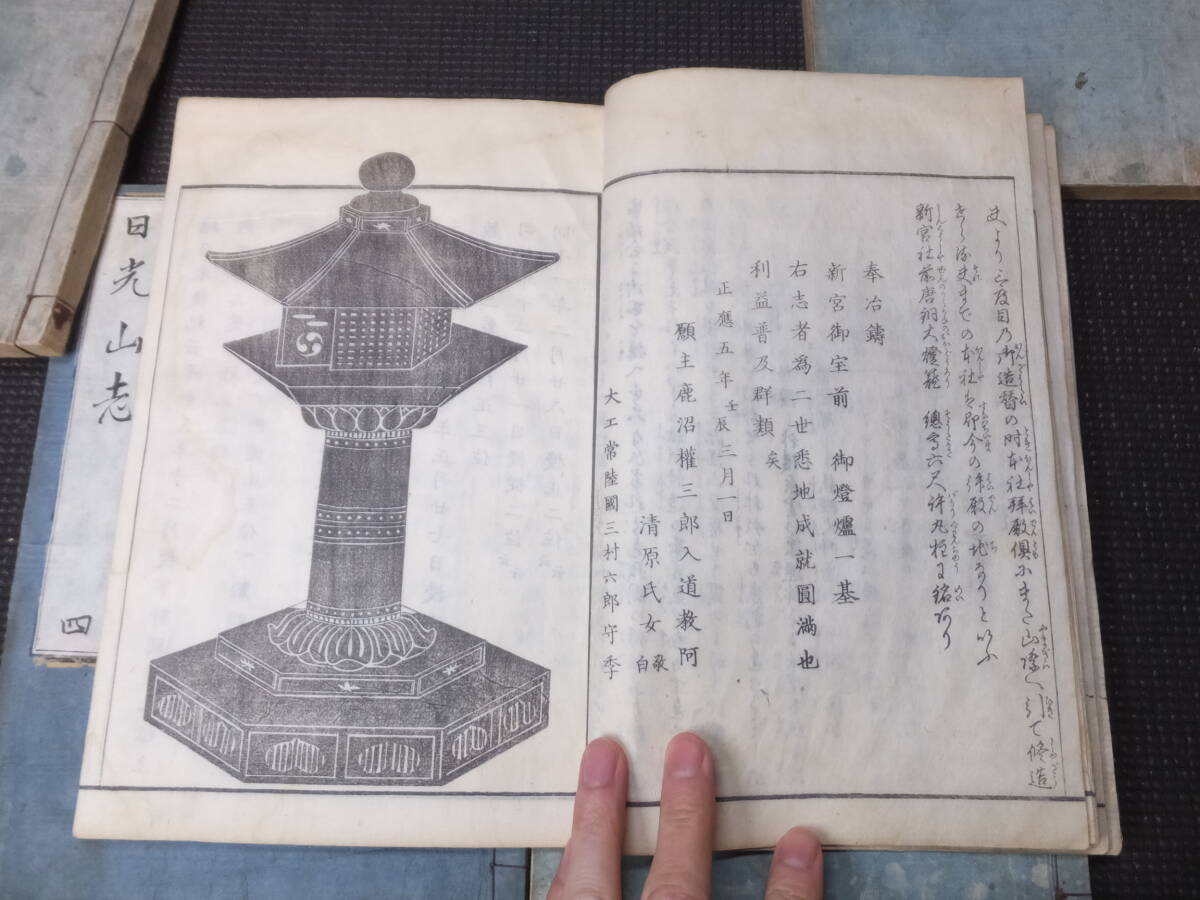 夫より三度目乃御造替の時本社拝殿倶にまた山際へ引て修造
本社を即今の拝殿の地なりといふ
新宮社前唐銅大燈籠 總高六尺許九柱に銘あり
奉冶鑄
新宮御室前 御燈爐一基
右志者為二世悉地成就圓滿也
利益普及群類矣
正應五年壬辰三月一日
願主鹿沼權三郎入道教阿
清原氏女敬白
大工常陸國三村六郎守季
日光山志
四